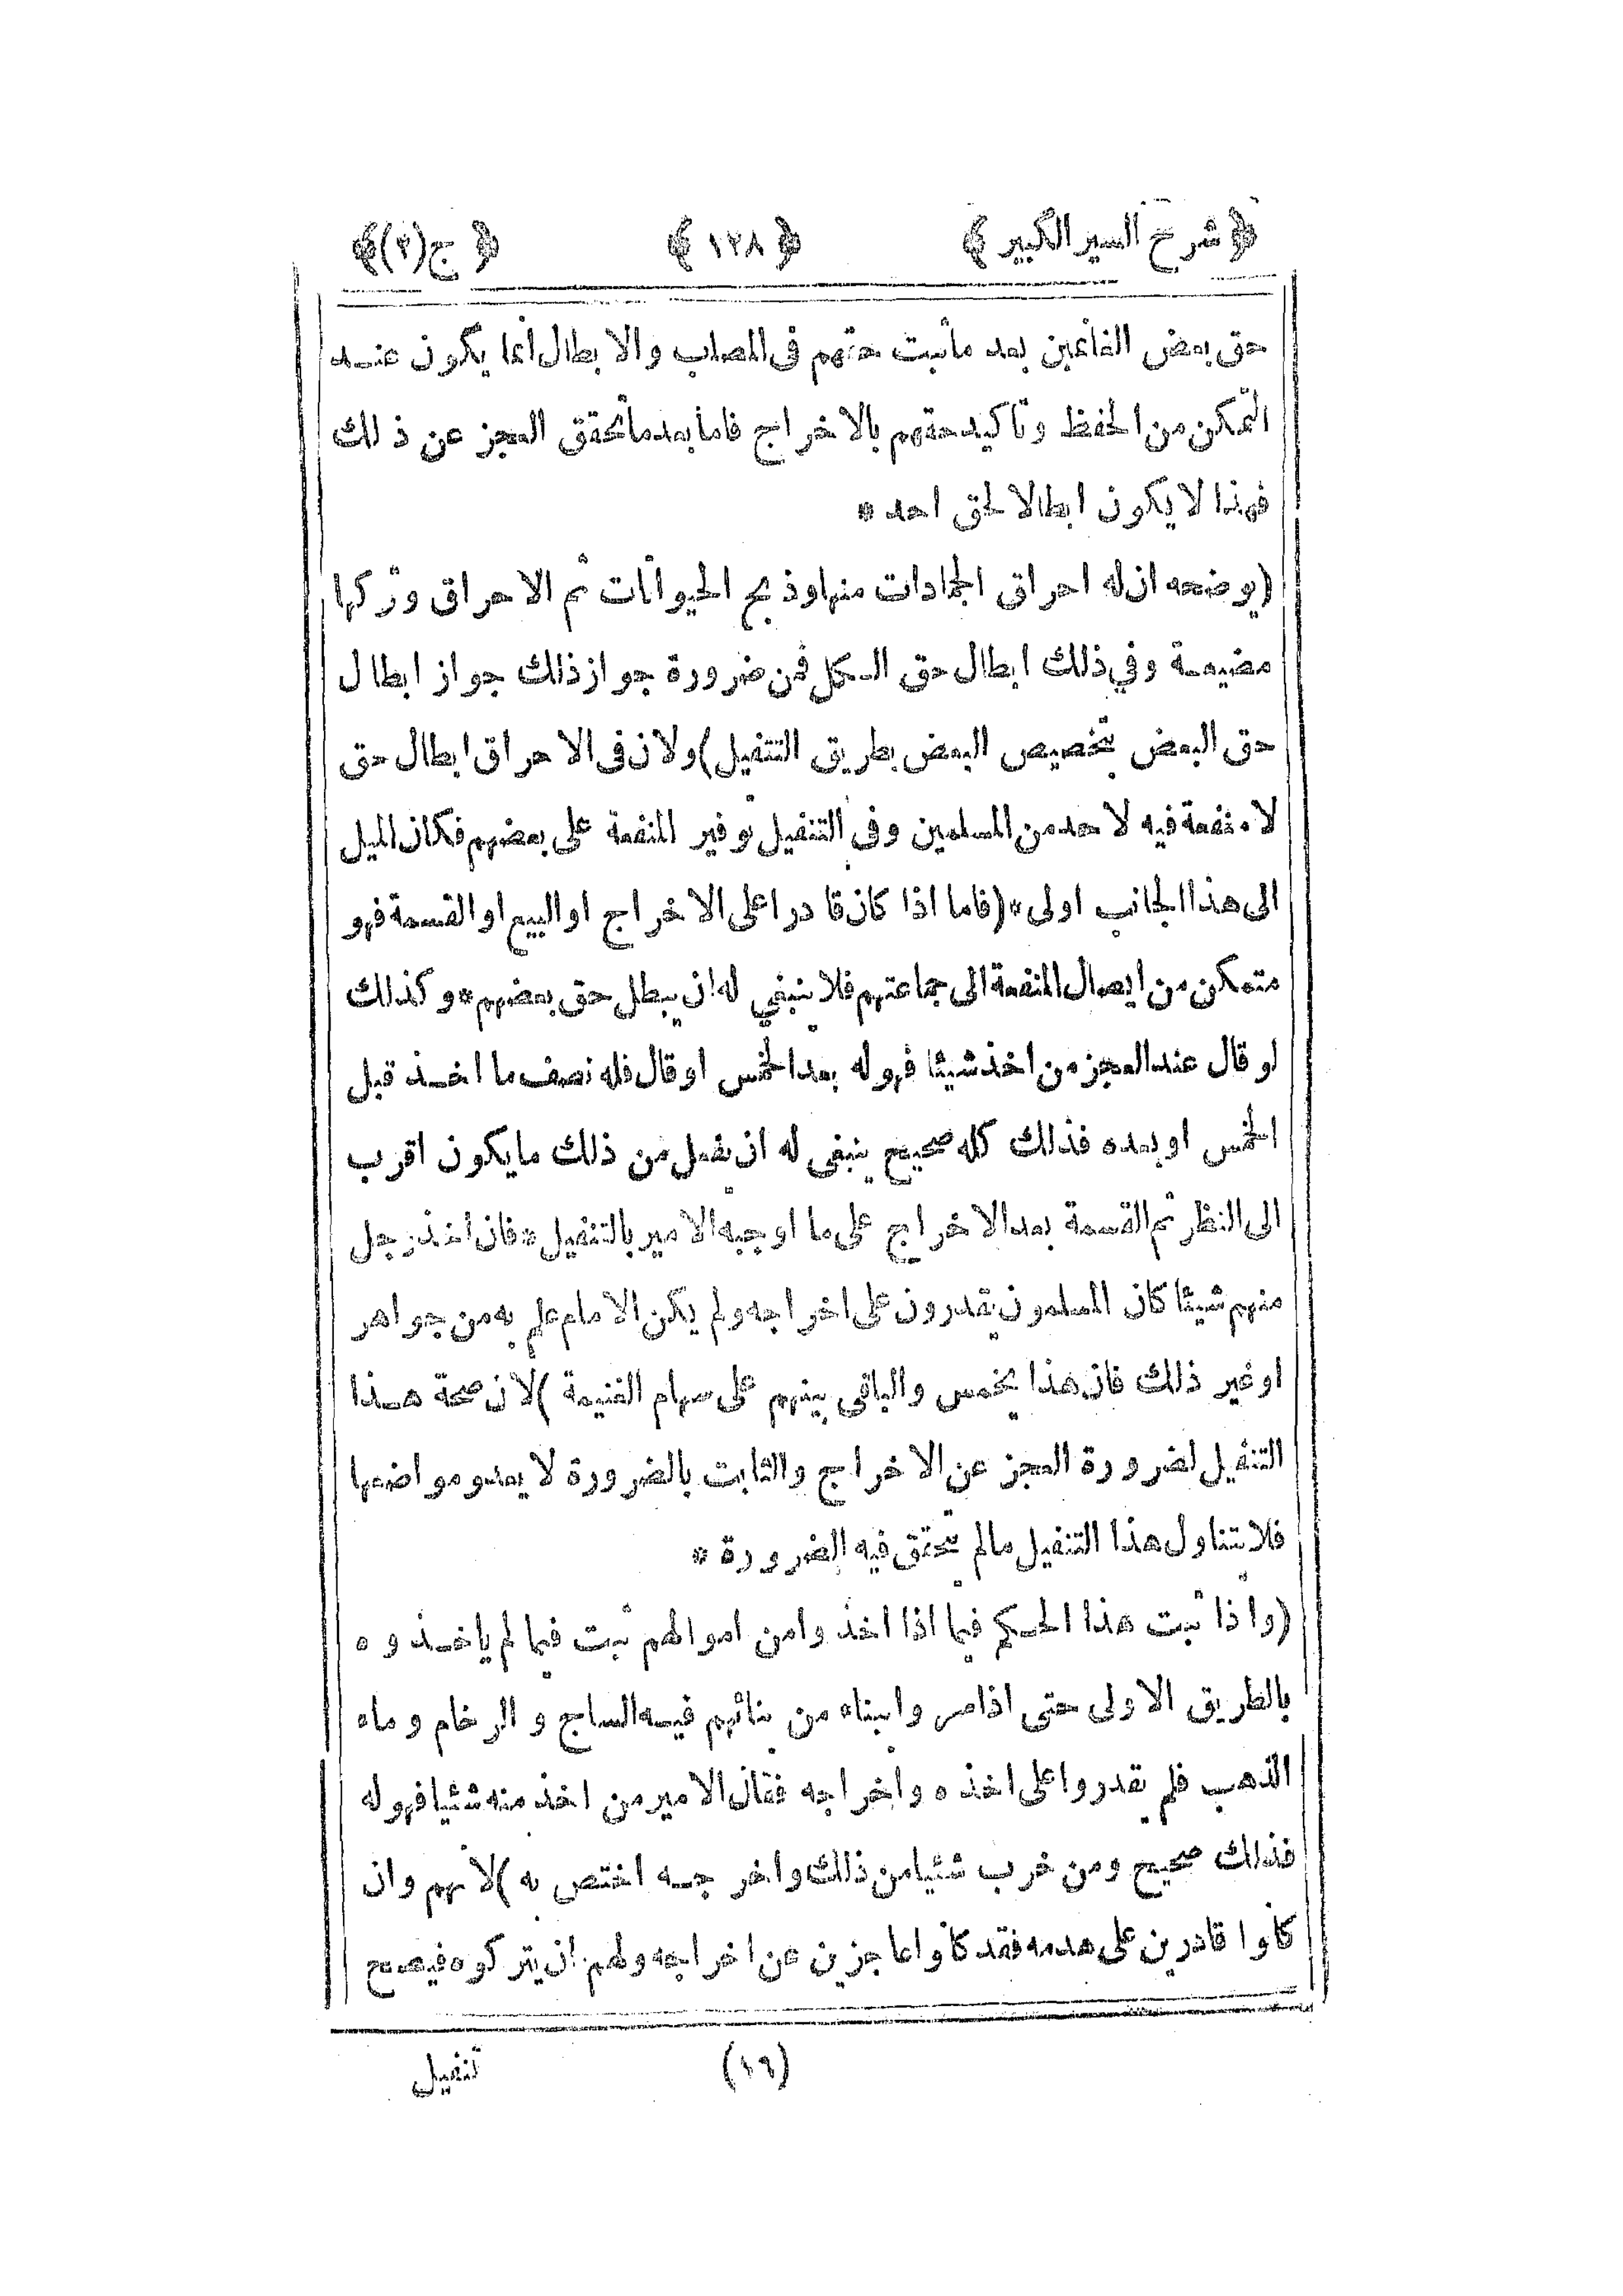 ﴿ شرح السير الكبير ﴾ ﴿ ١٢٨ ﴾ ﴿ ج(٢) ﴾
حق بعض الغانمين بعد ما ثبت حقهم فى المصاب والابطال انما يكون عند
التمكن من الحفظ وتاكيد حقهم بالاخراج فاما بعد ما تحقق العجز عن ذلك
فهذا لا يكون ابطالا لحق احد *
(يوضحه ان له احراق الجمادات منها وذبح الحيوانات ثم الاحراق وتركها
مضيعة وفي ذلك ابطال حق الكل فمن ضرورة جواز ذلك جواز ابطال
حق البعض بتخصيص البعض بطريق التنفيل) ولان فى الاحراق ابطال حق
لا منفعة فيه لاحد من المسلمين وفى التنفيل توفير المنفعة على بعضهم فكان الميل
الى هذا الجانب اولى * (فاما اذا كان قادرا على الاخراج او البيع او القسمة فهو
متمكن من ايصال المنفعة الى جماعتهم فلا ينبغي له ان يبطل حق بعضهم * وكذلك
لو قال عند العجز من اخذ شيئا فهو له بعد الخمس او قال فله نصف ما اخذ قبل
الخمس او بعده فذلك كله صحيح ينبغى له ان يفعل من ذلك ما يكون اقرب
الى النظر ثم القسمة بعد الاخراج على ما اوجبه الامير بالتنفيل * فان اخذ رجل
منهم شيئا كان المسلمون يقدرون على اخراجه ولم يكن الامام علم به من جواهر
او غير ذلك فان هذا يخمس والباقى بينهم على سهام الغنيمة) لان صحة هذا
التنفيل لضرورة العجز عن الاخراج والثابت بالضرورة لا يعدو مواضعها
فلا يتناول هذا التنفيل مالم يتحقق فيه الضرورة *
(واذا ثبت هذا الحكم فيما اذا اخذوا من اموالهم ثبت فيما لم ياخذوه
بالطريق الاولى حتى اذا مروا ببناء من بنائهم فيه الساج والرخام وماء
الذهب فلم يقدروا على اخذه واخراجه فقال الامير من اخذ منه شئيا فهو له
فذلك صحيح ومن خرب شئيا من ذلك واخرجه اختص به) لانهم وان
كانوا قادرين على هدمه فقد كانوا عاجزين عن اخراجه ولهم ان يتركوه فيصح
(١٦) تنفيل